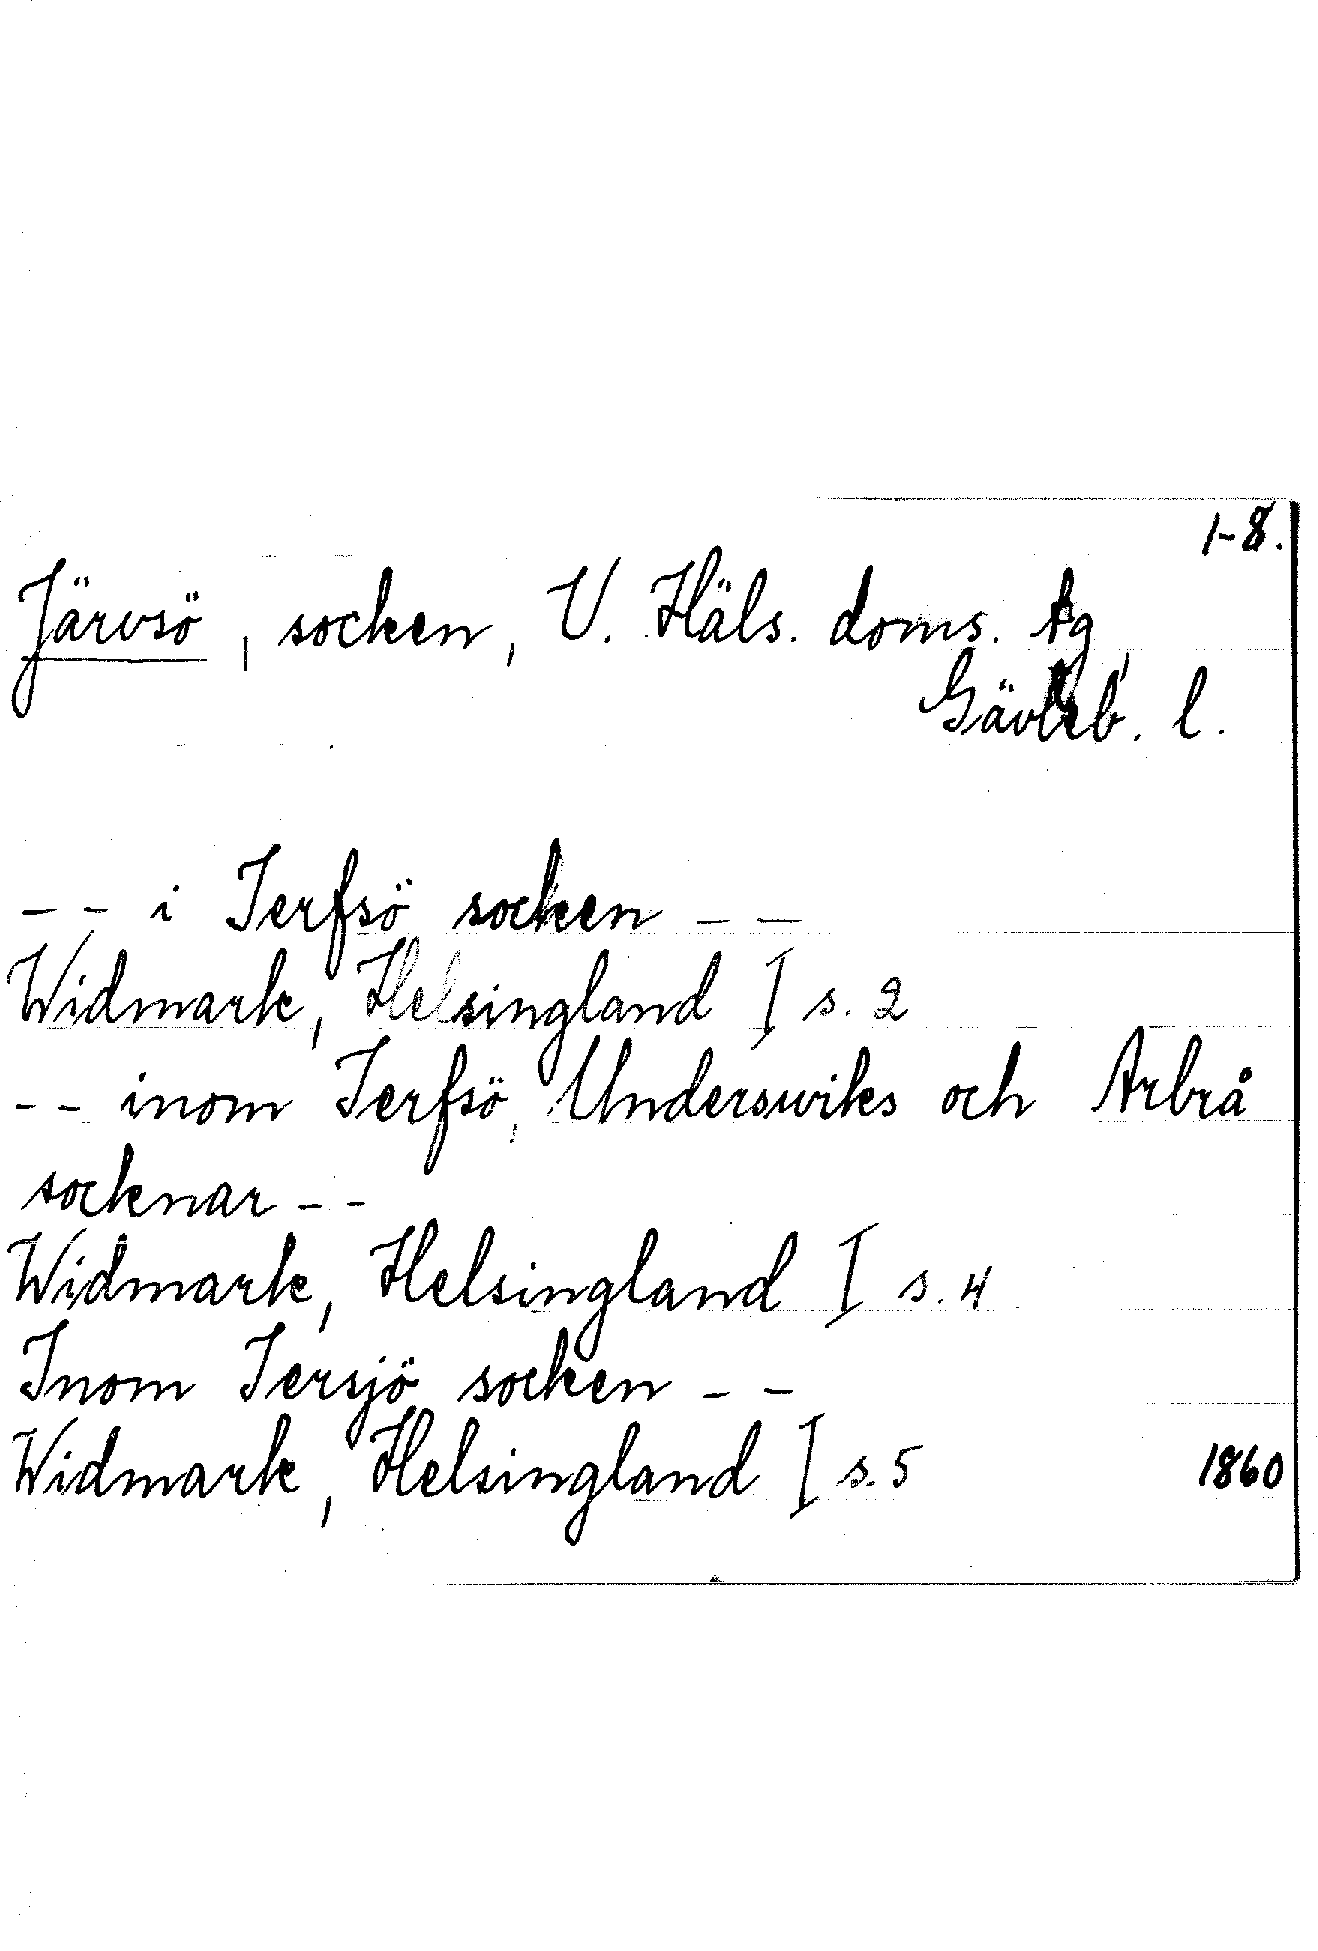 1-8.
Järvsö, socken, V. Häls. doms. tg,
Gävleb. l.
-- i Jerfsö socken --
Widmark, Helsingland I s. 2
-- inom Jerfsö, Underswiks och Arbrå
socknar --
Widmark, Helsingland I s. 4
Inom Jersjö socken --
Widmark, Helsingland I s. 5 1860